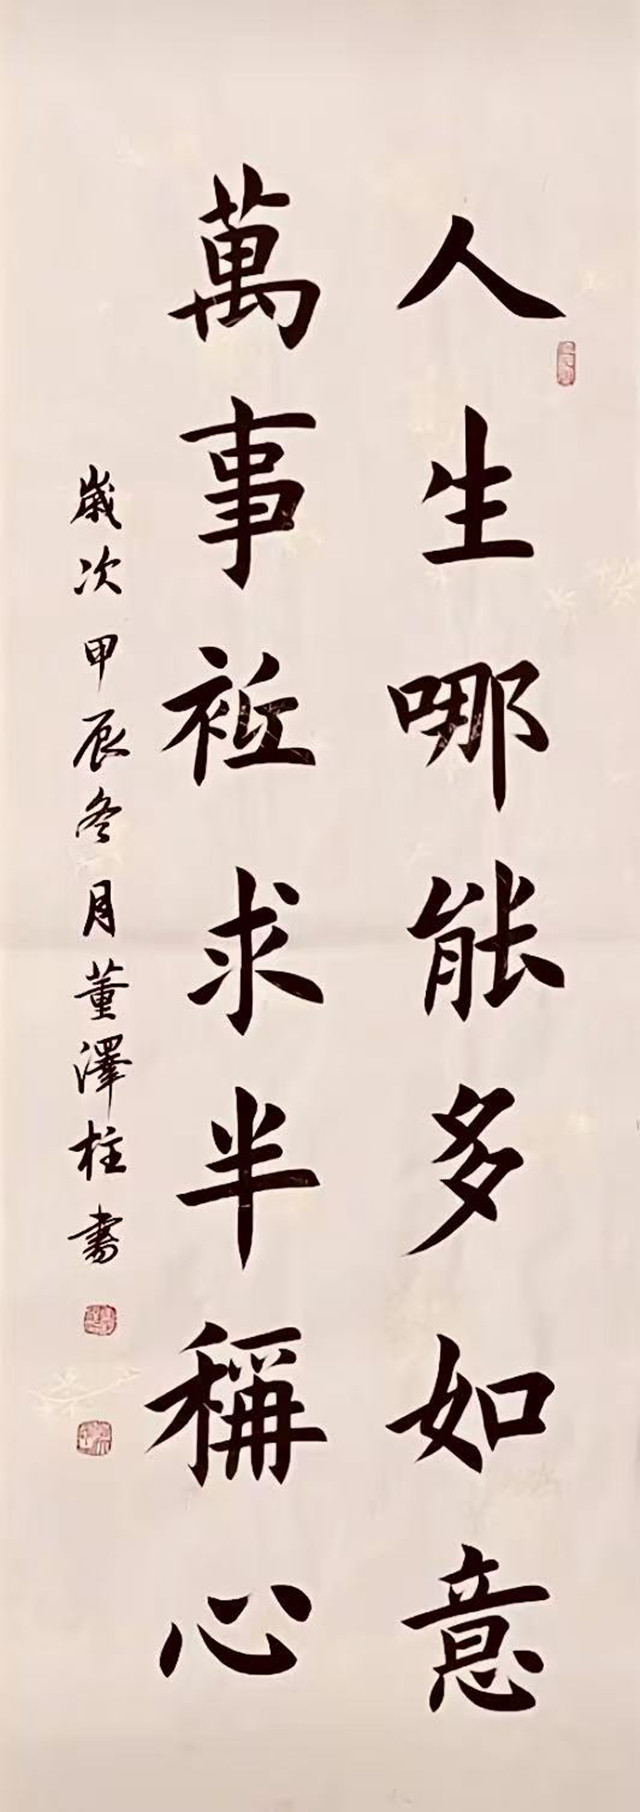 人生哪能多如意
萬事祗求半稱心
歲次甲辰冬月董澤柱書